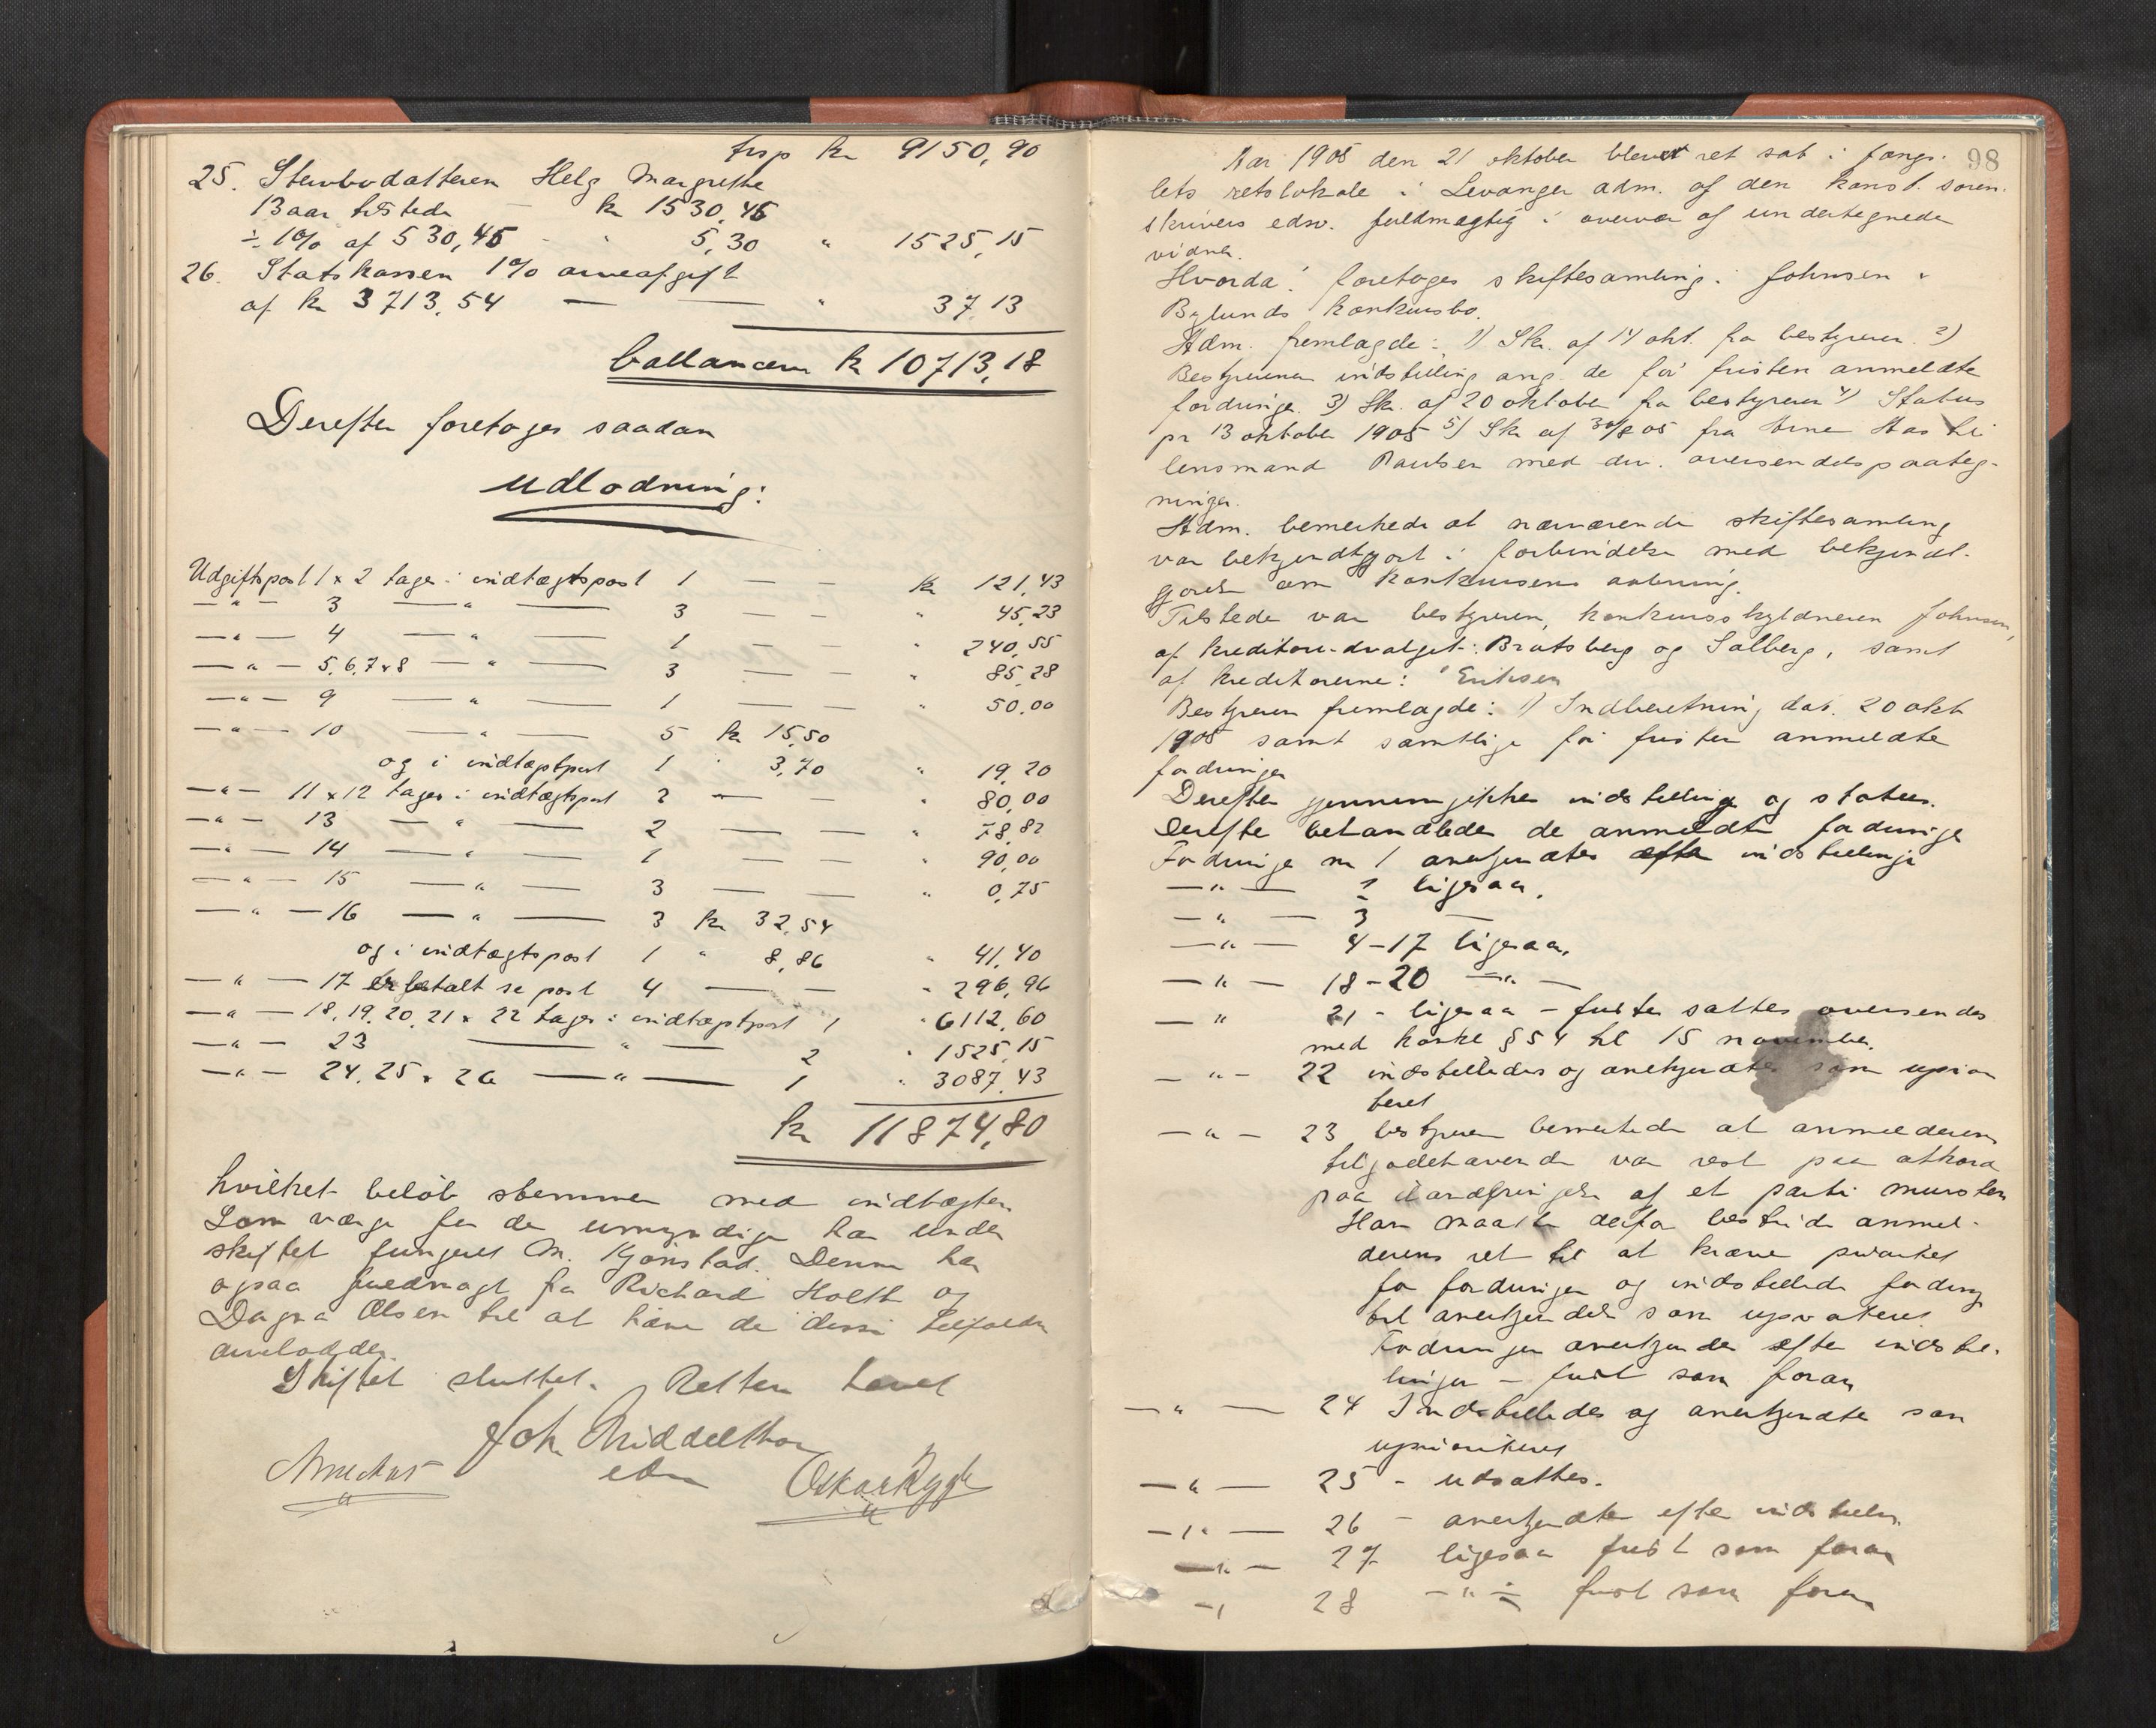 trsp kr 9150,90
25. Stervbodatteren Helg Margrethe
13 aar tilstede — kr 1530,45
÷ 1% af 530,45 - " 5,30 " 1525,15
26. Statskassen 1% arveafgift
af kr 3713,54 — — " 37,13
ballancen kr 10713,18
Derefter foretoges saadan
udlodning:
Udgiftspost 1 x 2 tages i indtægtspost 1 — — kr 121,43
— " — 3 — " — 3 — — " 45,23
— " — 4 — " — 1 — — " 240,55
— " — 5,6,7 x 8 — " — 3 — — " 85,28
— " — 9 — " — 1 — — " 50,00
— " — 10 — " — 5 kr 15,50
og i indtægtspost 1 " 3,70 " 19,20
— " — 11 x 12 tages i indtægtspost 2 — — " 80,00
— " — 13 — " — 2 — — " 78,82
— " — 14 — " — 1 — — " 90,00
— " — 15 — " — 3 — — " 0,75
— " — 16 — " — 3 kr 32,54
og i indtægtspost 1 " 8,86 " 41,40
— " — 17 er betalt se post 4 — — " 296,96
— " — 18, 19, 20, 21 x 22 tages i indtægtspost 1 " 6112,60
— " — 23 — " — 2 " 1525,15
— " — 24, 25 x 26 — " — 1 " 3087,43
kr 11874,80
hvilket beløb stemmer med indtægten
Som værge for de umyndige har under
skiftet fungeret M. Gjønstad. Denne har
ogsaa fuldmagt fra Richard Holth og
Dagna Olsen til at hæve de dem tilfaldne
arvelodder.
Skiftet sluttet. Retten hævet
Joh. Middelthon
edsv. Oskar Rygh
98
Aar 1905 den 21 oktober blev ret sat i fængs-
lets retslokale i Levanger adm. af den konst. soren-
skrivers edsv. fuldmægtig i overvær af undertegnede
vidner.
Hvorda: foretoges skiftesamling i Johnsen x
Bylunds konkursbo.
Adm. fremlagde: 1) Skr. af 14 okt. fra bestyreren. 2)
Bestyrerens indstilling ang. de før fristen anmeldte
fordringer. 3) Skr. af 20 oktober fra bestyreren 4) Status
pr 13 oktober 1905 5) Skr af 30/8 05 fra Arne Aas til
lensmand Paulsen med div. oversendelsespaateg-
ninger.
Adm. bemerkede at nærværende skiftesamling
var bekjendtgjort i forbindelse med bekjendt-
gjørelse om konkursens aabning.
Tilstede var bestyreren, konkursskyldneren Johnsen,
af kreditorudvalget: Bratsberg og Salberg, samt
af kreditorerne: Eriksen
Bestyreren fremlagde: 1) Indberetning dat. 20 okt
1905 samt samtlige før fristen anmeldte
fordringer
Derefter gjennemgikkes indstilling og status.
Derefter behandledes de anmeldte fordringer
Fordringe nr 1 anerkjendtes efter indstillingen
— " — 2 ligesaa.
— " — 3 —
— " — 4-17 ligesaa.
— " — 18-20 — " —
— " 21 - ligesaa - frister sattes oversendes
med konkl § 54 til 15 november.
— " — 22 indstilledes og anerkjendtes som uprior
teret
— " — 23 bestyreren bemerkede at anmelderens
tilgodehavende var rest paa akkord
paa ilandbringelse af et parti mursten
Han maatte derfor bestride anmel-
derens ret til at kræve prioritet
for fordringen og indstillede fordring
til anerkjendelse som uprioriteret
Fordringen anerkjendes efter indstil-
lingen - frist som foran
— " — 24 Indstilledes og anerkjendtes som
uprioriteret
— " — 25 - udsattes.
— " — 26 - anerkjendtes efter indstillin
— " — 27 ligesaa frist som foran
— " 28 — " — frist som foran